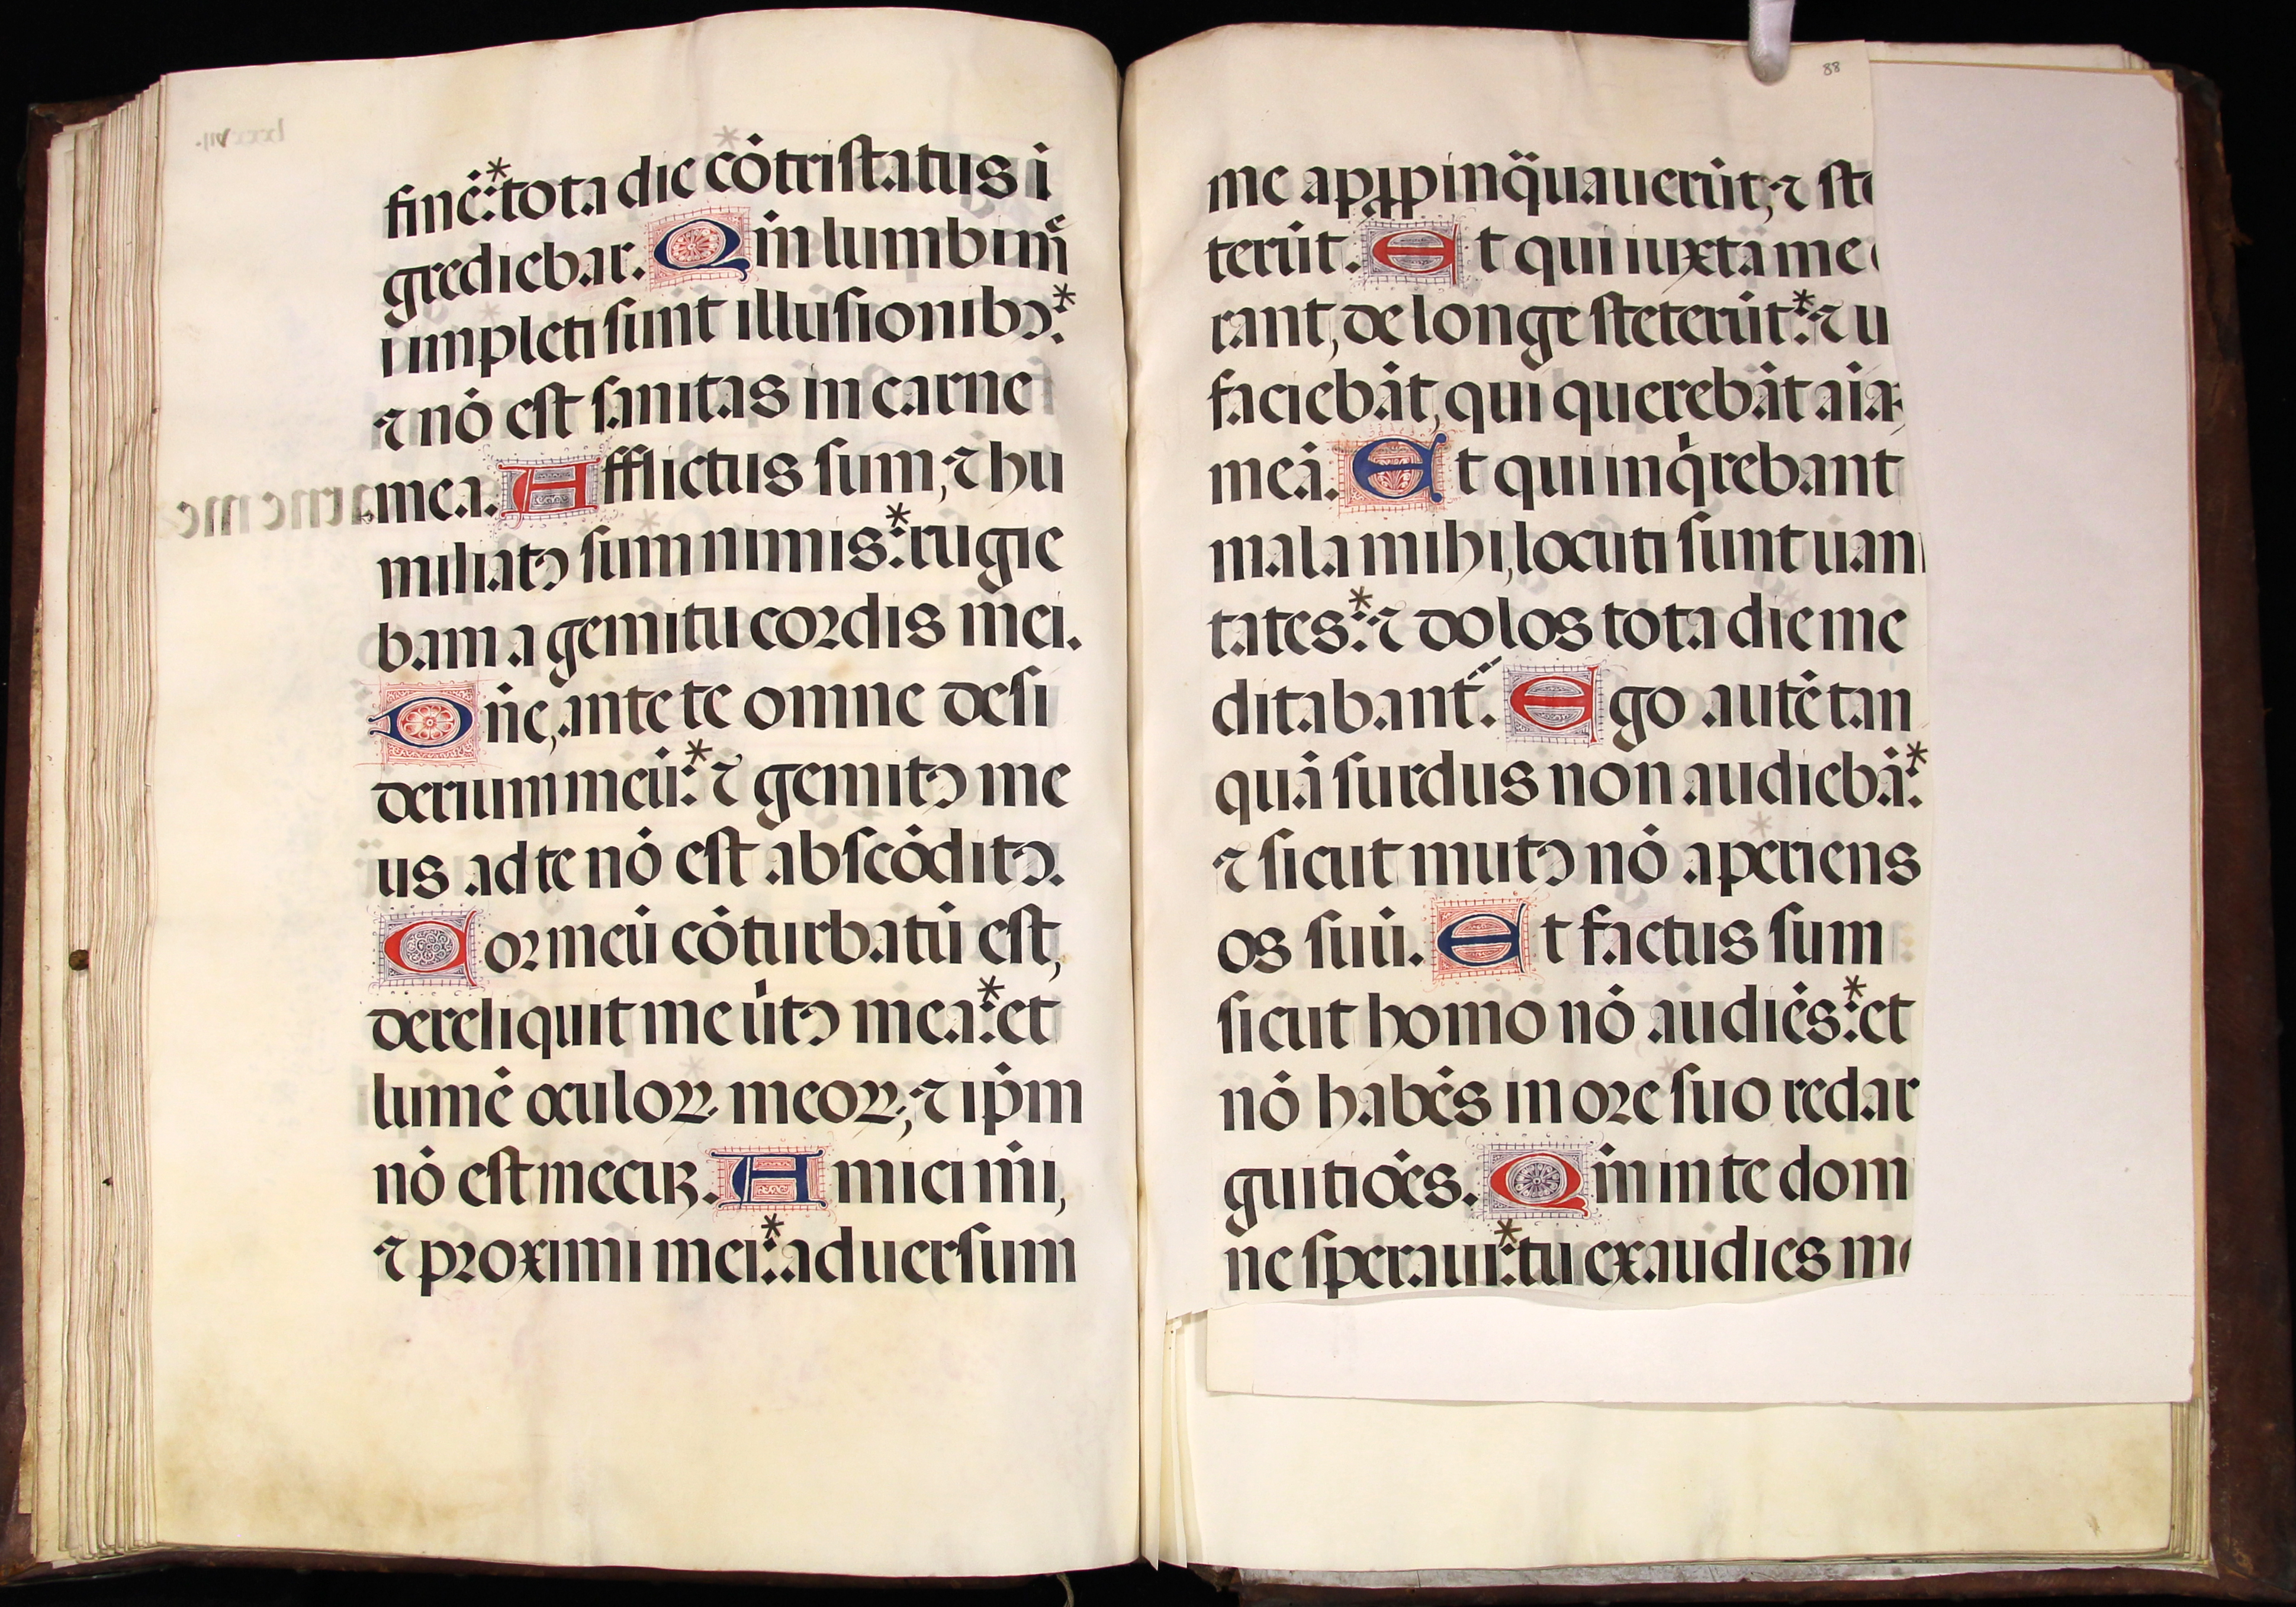 finē: * tota die cōtristatus ī
grediebar. Qm̄ lumbi mͤi
impleti sunt illusionibꝰ: *
⁊ nō est sanitas in carne
mea. Afflictus sum, ⁊ hu
miliatꝰ sum nimis: * rugie
bam a gemitu cordis mei.
Dn̄e, ante te omne desi
derium meū: * ⁊ gemitꝰ me
us ad te nō est abscōditꝰ.
Cor meū cōturbatū est,
dereliquit me ūtꝰ mea: * et
lumē oculoꝝ meoꝝ, ⁊ ip̄m
nō est mecuꝫ. Amici mi,
⁊ proximi mei: * aduersum
88
me apꝓpinq̄uauerūt, ⁊ ste
terūt. Et qui iuxta me
rant, de longe steterūt: * ⁊ u
faciebāt, qui querebāt aīa
meā. Et qui inqͥrebant
mala mihi, locuti sunt uani
tates: * ⁊ dolos tota die me
ditabant̃. Ego autē tan
quā surdus non audiebā: *
⁊ sicut mutꝰ nō aperiens
os suū. Et factus sum
sicut homo nō audiēs: * et
nō habēs in ore suo redar
guitiōes. Qm̄ in te dom
ne speraui: * tu exaudies me